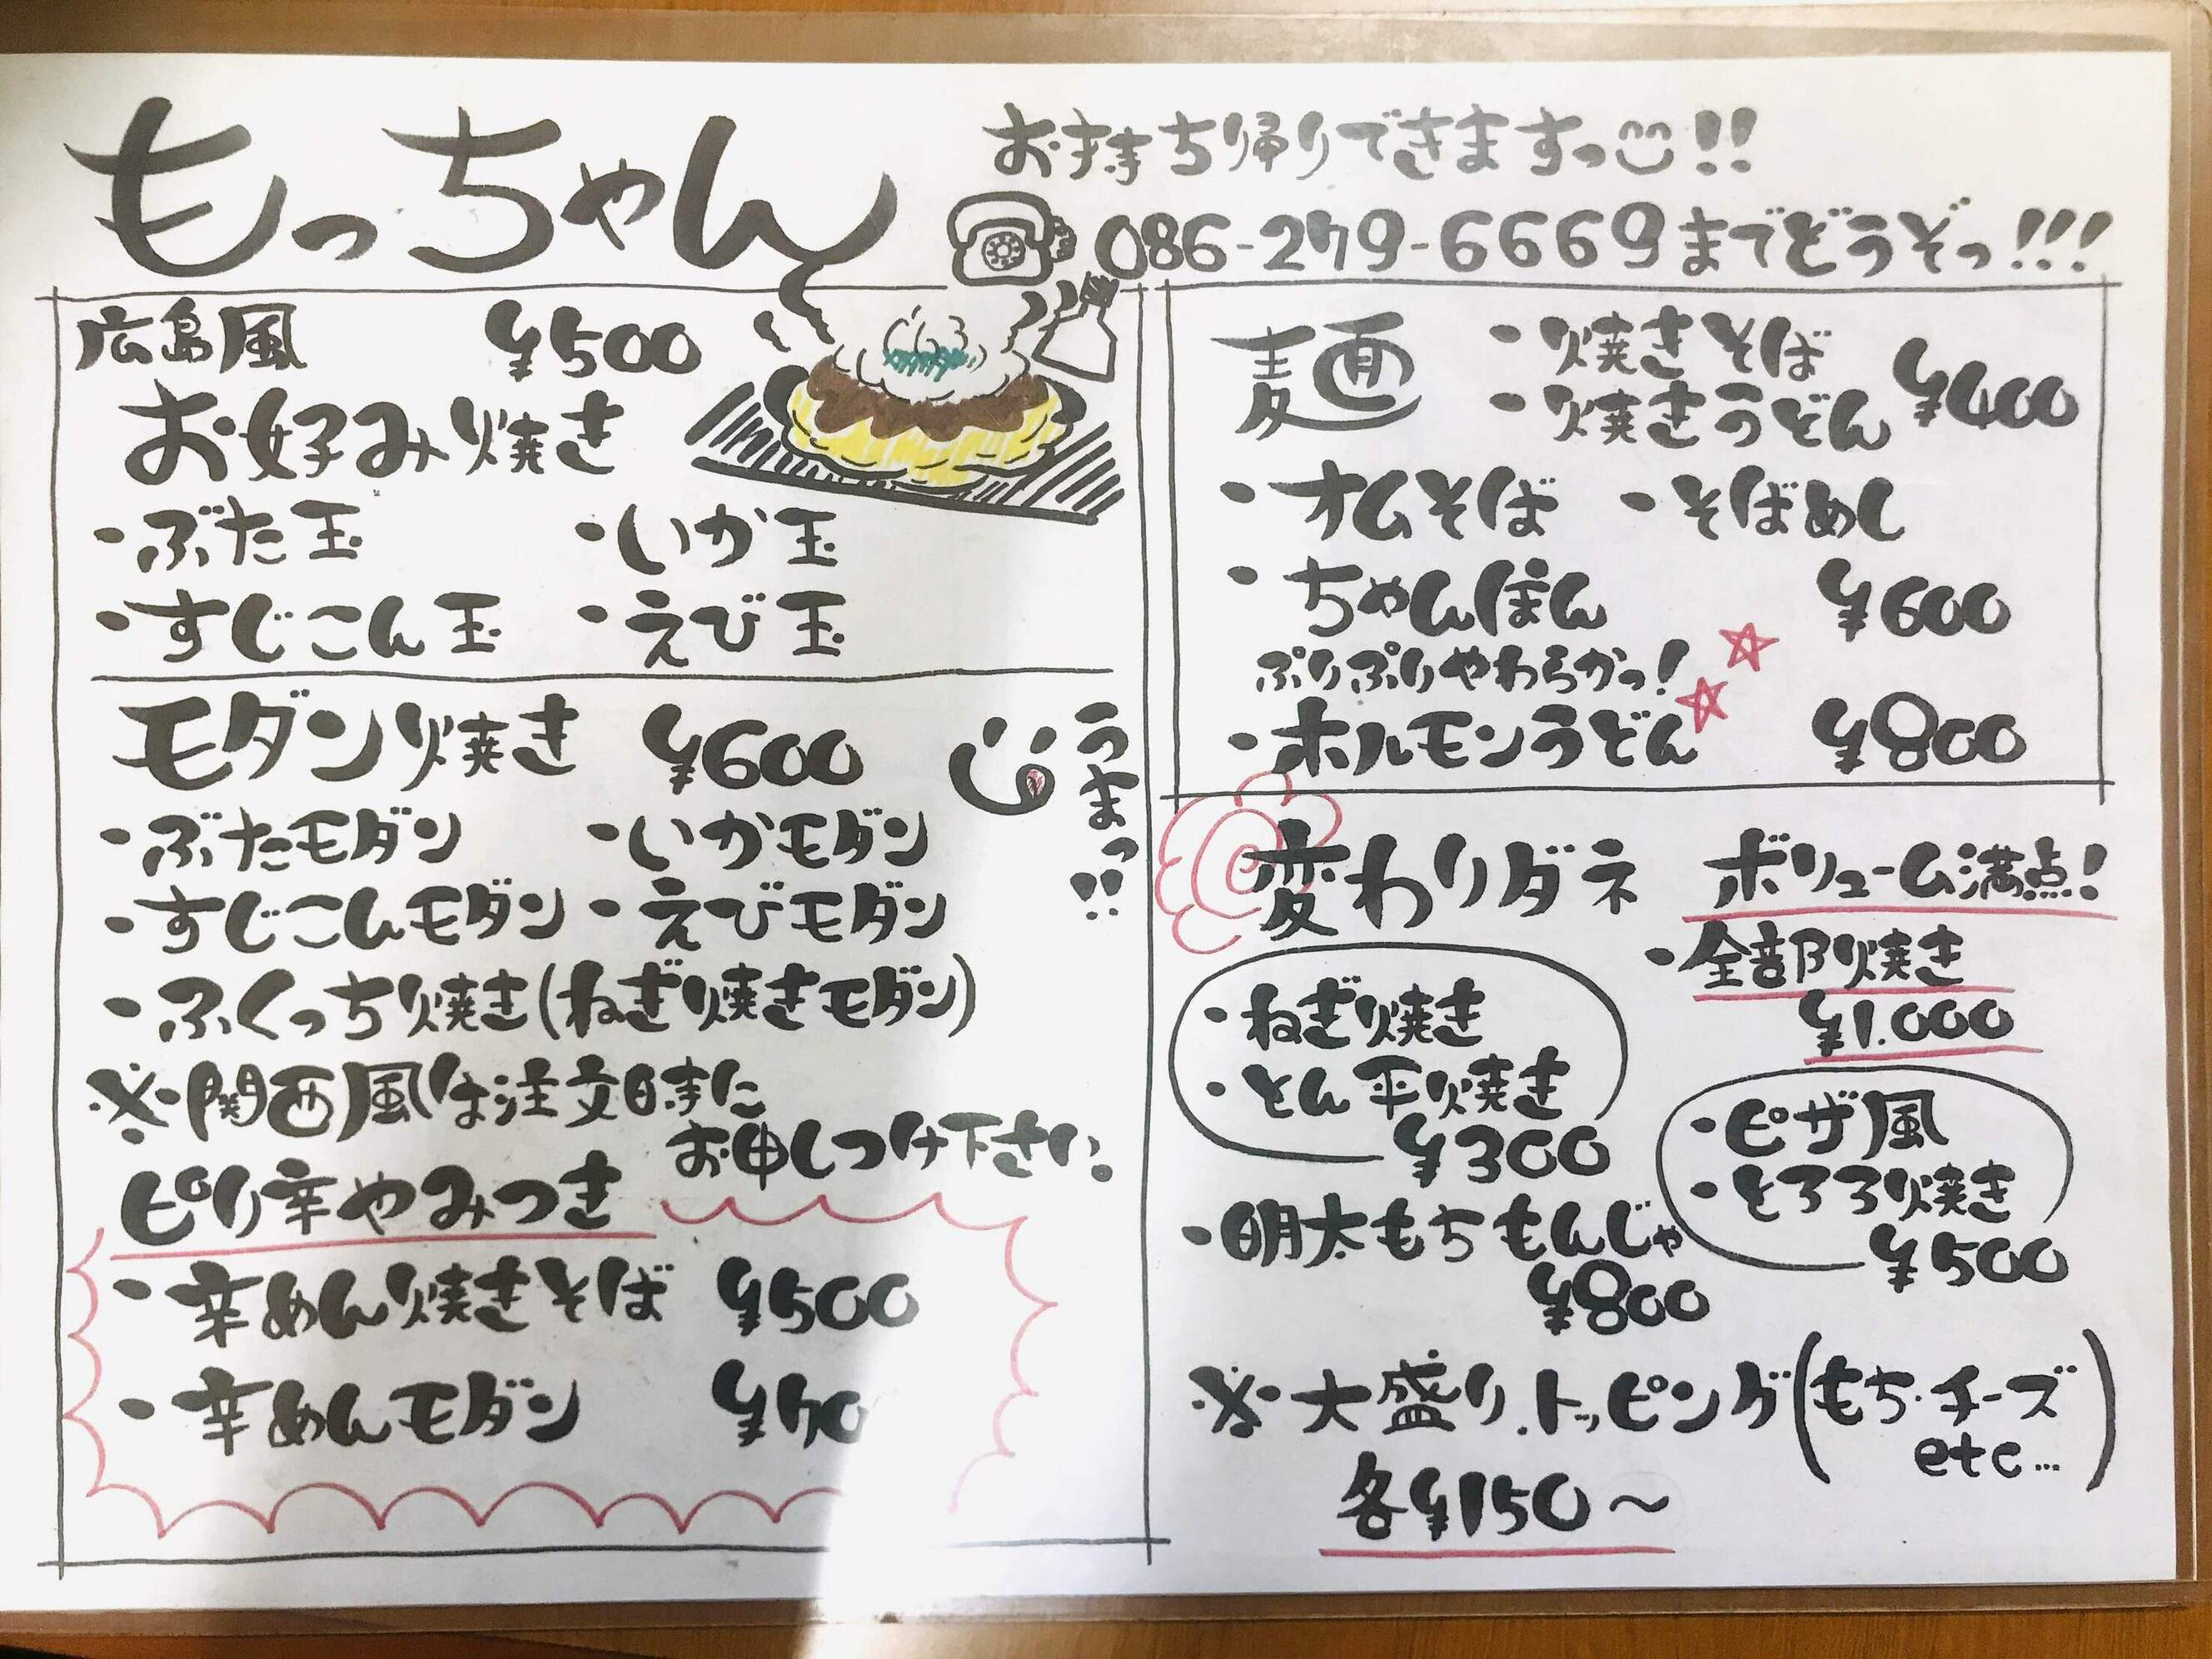 もっちゃん
お持ち帰りできますっ!!
086-279-6669までどうぞっ!!!
広島風 ¥500
お好み焼き
・ぶた玉 ・いか玉
・すじこん玉 ・えび玉
モダン焼き ¥600
うまっ!!
・ぶたモダン ・いかモダン
・すじこんモダン ・えびモダン
・ふくっち焼き(ねぎ焼きモダン)
※関西風は注文時に
お申しつけ下さい。
ピリ辛やみつき
・辛めん焼きそば ¥500
・辛めんモダン ¥70
麺 ・焼きそば
・焼きうどん ¥400
・オムそば ・そばめし
・ちゃんぽん ¥600
ぷりぷりやわらかっ!
・ホルモンうどん ¥800
変わりダネ ボリューム満点!
・全部焼き
¥1.000
・ねぎ焼き
・とん平焼き
¥300
・ピザ風
・とろろ焼き
¥500
・明太もちもんじゃ
¥800
※・大盛り.トッピング(もち・チーズ
etc…)
各¥150～